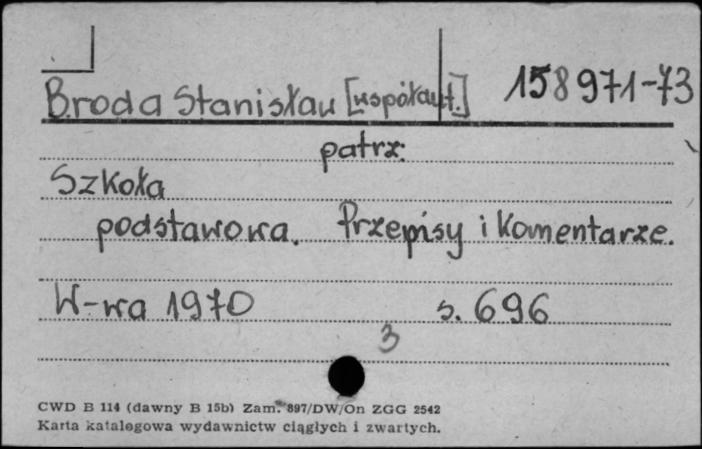 158971-73
Broda Stanisław [współaut.]
patrz:
Szkoła
podstawowa. Przepisy i komentarze.
W-wa 1970 s. 696
3
CWD B 114 (dawny B 15b) Zam. 897/DW/On ZGG 2542
Karta katalogowa wydawnictw ciągłych i zwartych.